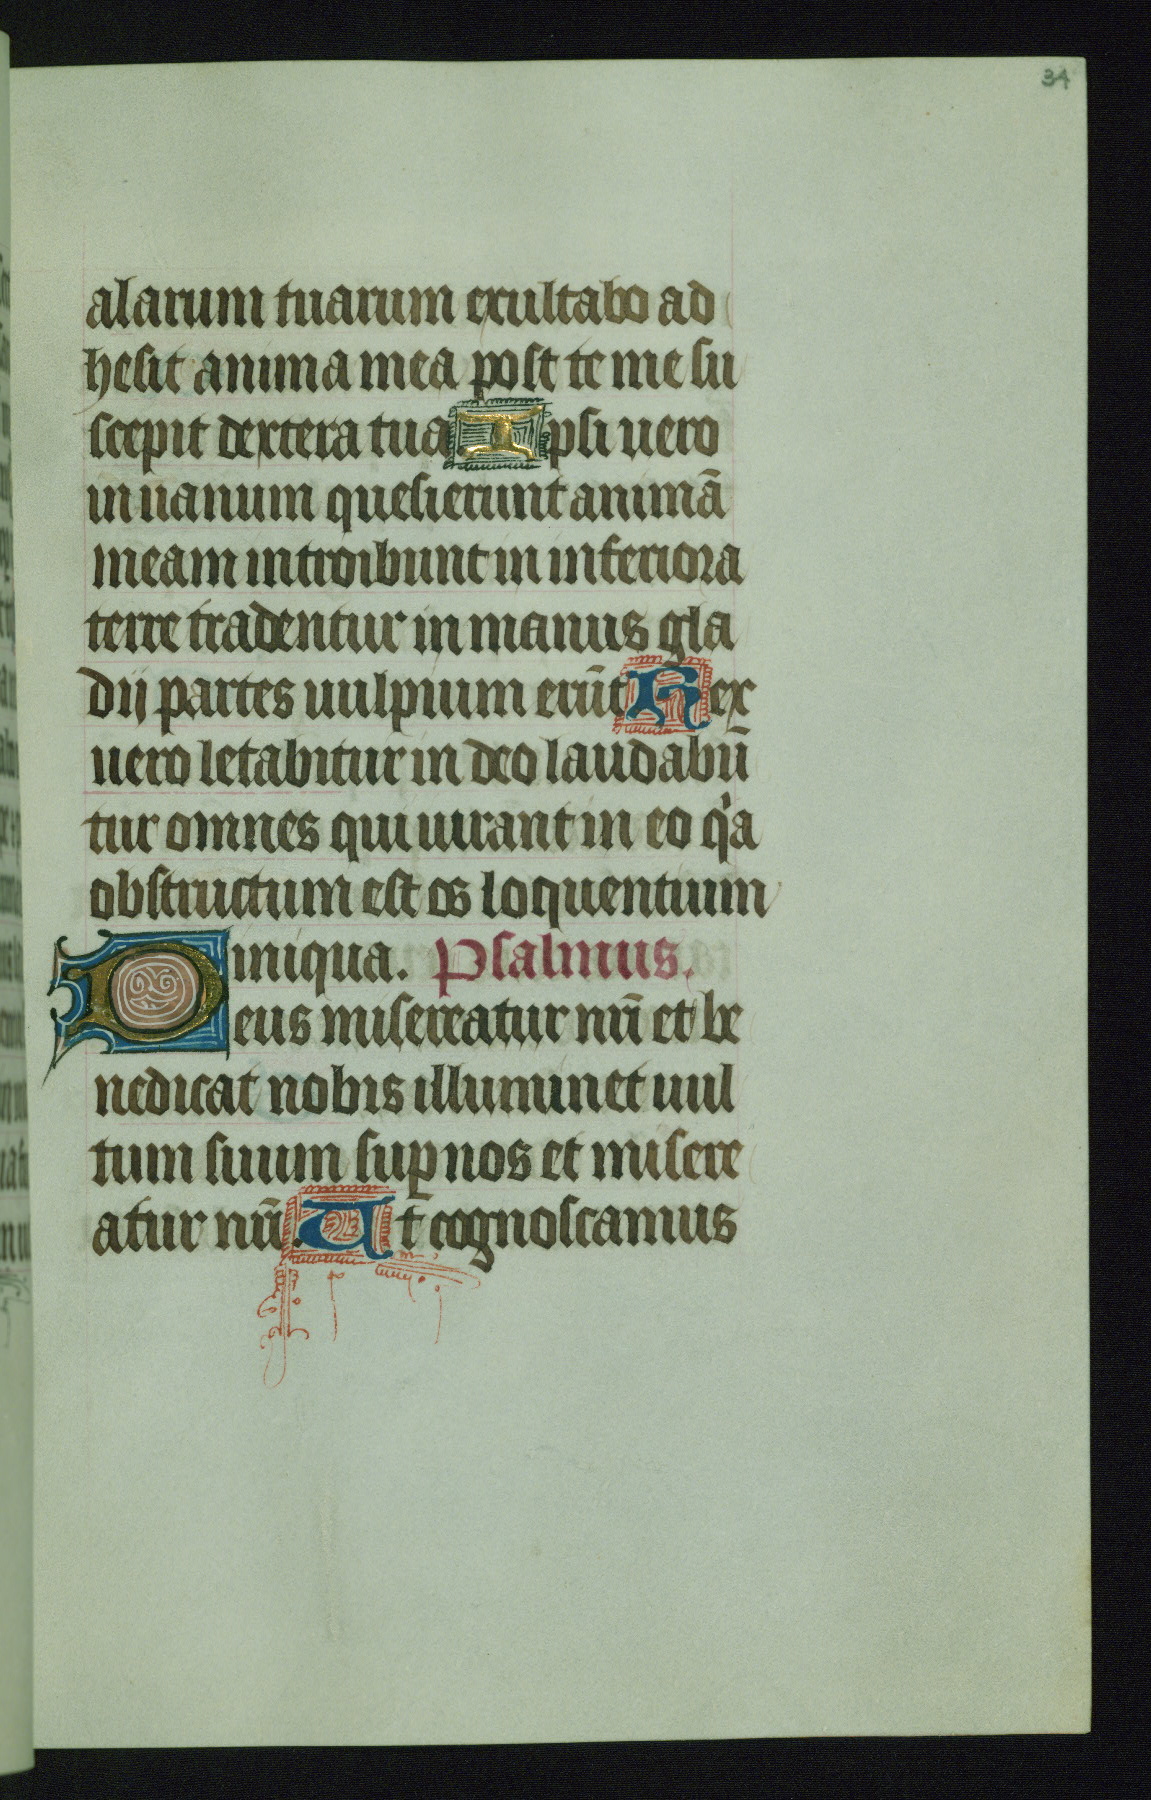 34
alarum tuarum exultabo ad
hesit anima mea post te me su
scepit dextera tua Ipsi uero
in uanum quesierunt animā
meam introibunt in inferiora
terre tradentur in manus gla
dij partes uulpium erūt Rex
uero letabitur in deo laudabū
tur omnes qui iurant in eo qͥa
obstructum est os loquentium
iniqua. Psalmus.
Deus misereatur nr̄i et be
nedicat nobis illuminet uul
tum suum sup nos et misere
atur nr̄i. Ut cognoscamus